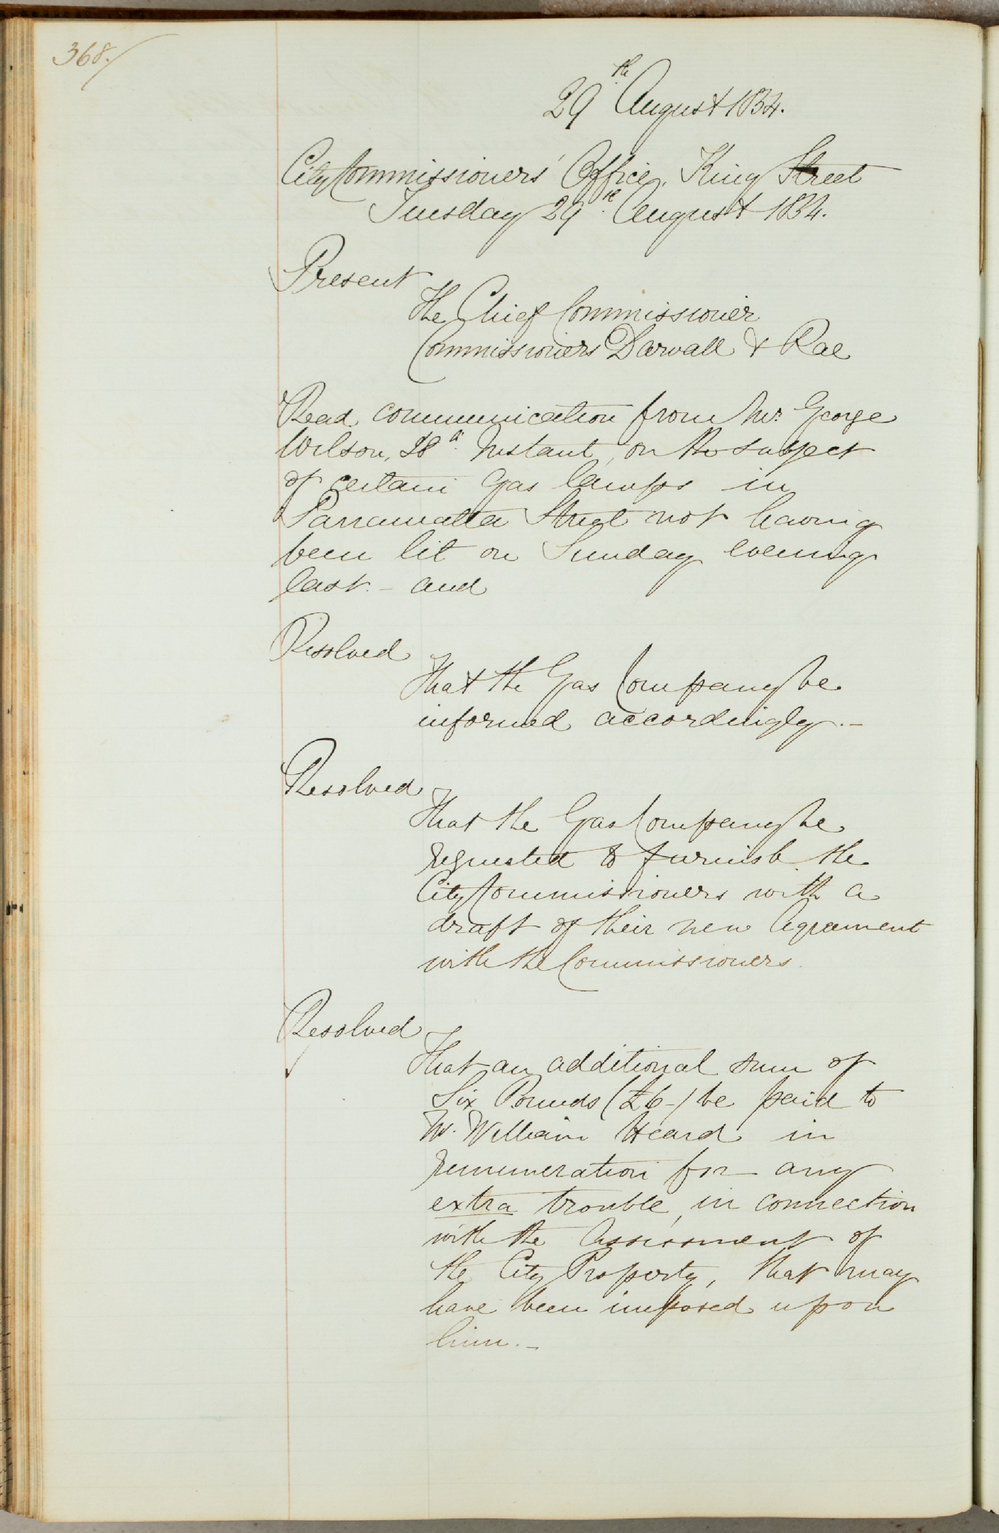 368.
29th August 1854.
City Commissioners' Office, King Street
Tuesday 29th August 1854.
Present
The Chief Commissioner
Commissioners Darvall & Rae
Read communication from Mr. George
Wilson, 28th Instant, on the subject
of certain Gas lamps in
Parramatta Street not having
been lit on Sunday evening
last. - and
Resolved
That the Gas Company be
informed accordingly. -
Resolved
That the Gas Company be
requested to furnish the
City Commissioners with a
draft of their new Agreement
with the Commissioners.
Resolved
That an additional sum of
Six Pounds (£6-) be paid to
Mr. William Heard in
remuneration for any
extra trouble, in connection
with the Assessment of
the City Property, that may
have been imposed upon
him. -